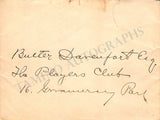 Butler Davenport Esq
The Players Club
16. Gramercy Park